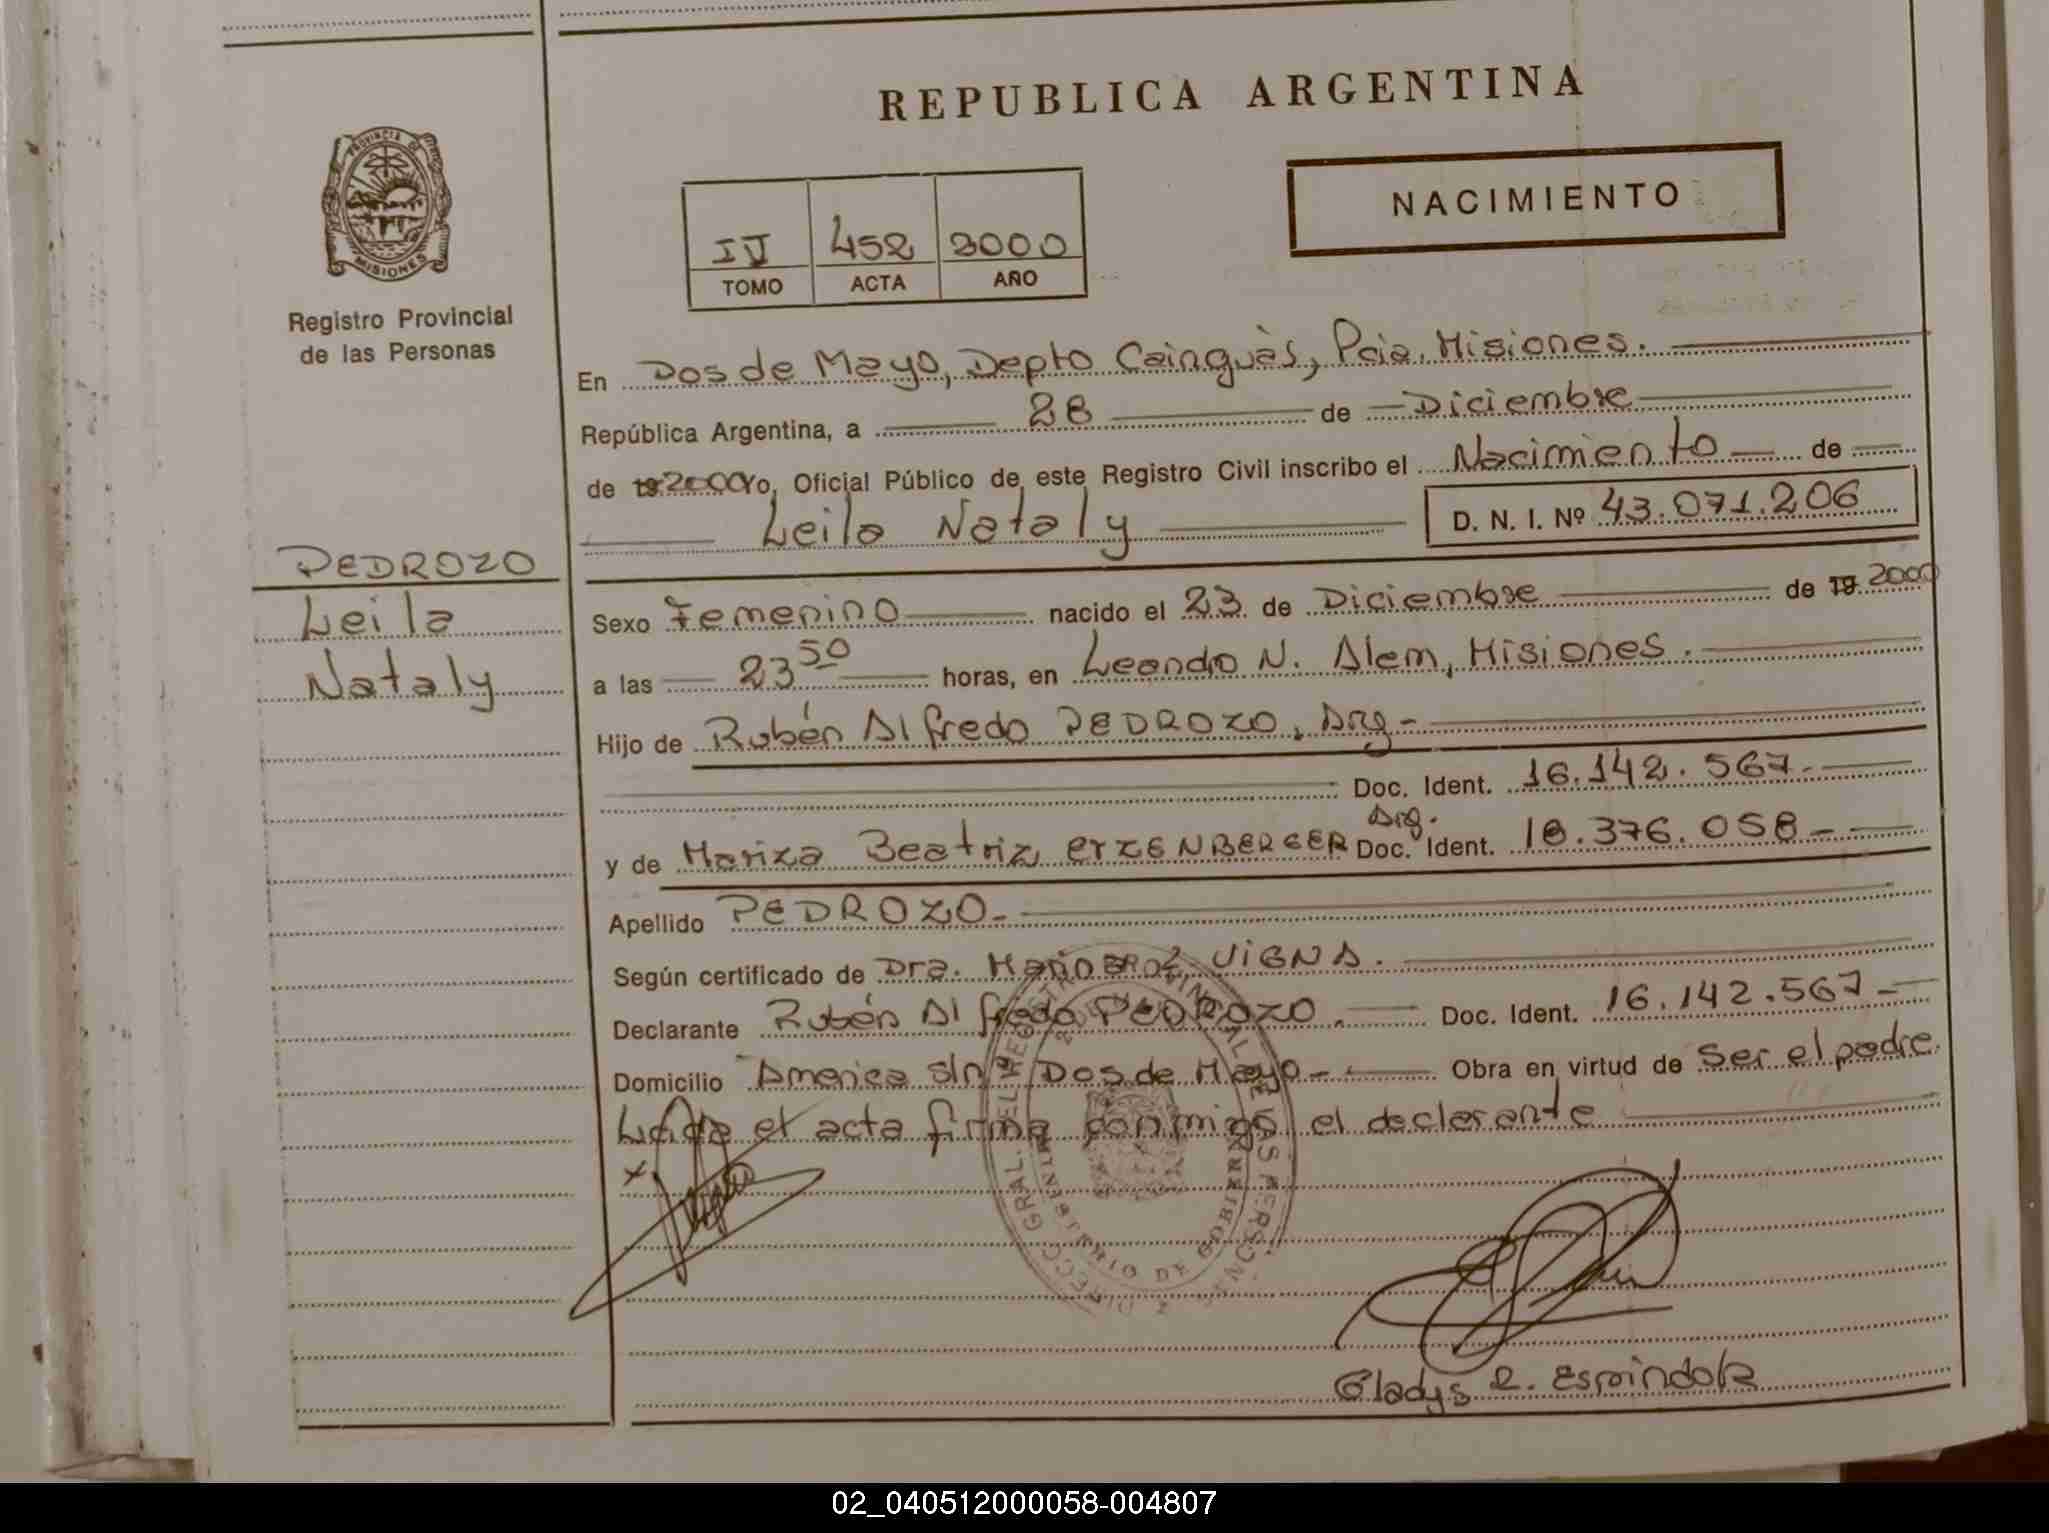 REPUBLICA ARGENTINA
NACIMIENTO
IV 452 2000
TOMO ACTA AÑO
PROVINCIA DE
MISIONES
Registro Provincial
de las Personas
En Dos de Mayo, Depto Cainguàs, Pcia. Misiones.
República Argentina, a 28 de Diciembre
de 19 2000 Yo, Oficial Público de este Registro Civil inscribo el Nacimiento de
Leila Nataly D. N. I. Nº 43.071.206
PEDROZO
Leila
Nataly
Sexo Femenino nacido el 23 de Diciembre de 19 2000
a las 23 50 horas, en Leandro N. Alem, Misiones.
Hijo de Rubén Alfredo PEDROZO, Arg-
Doc. Ident. 16.142.567.-
Arg.
y de Mariza Beatriz Doc. Ident. 18.376.058-
Apellido PEDROZO-
Según certificado de Dra. VIGNA.
Declarante Rubén Alfredo PEDROZO. Doc. Ident. 16.142.567-
Domicilio America s/n Dos de Mayo- Obra en virtud de Ser el padre.
Leida el acta firma conmigo el declarante
Gladys R. Espindola
02_040512000058-004807